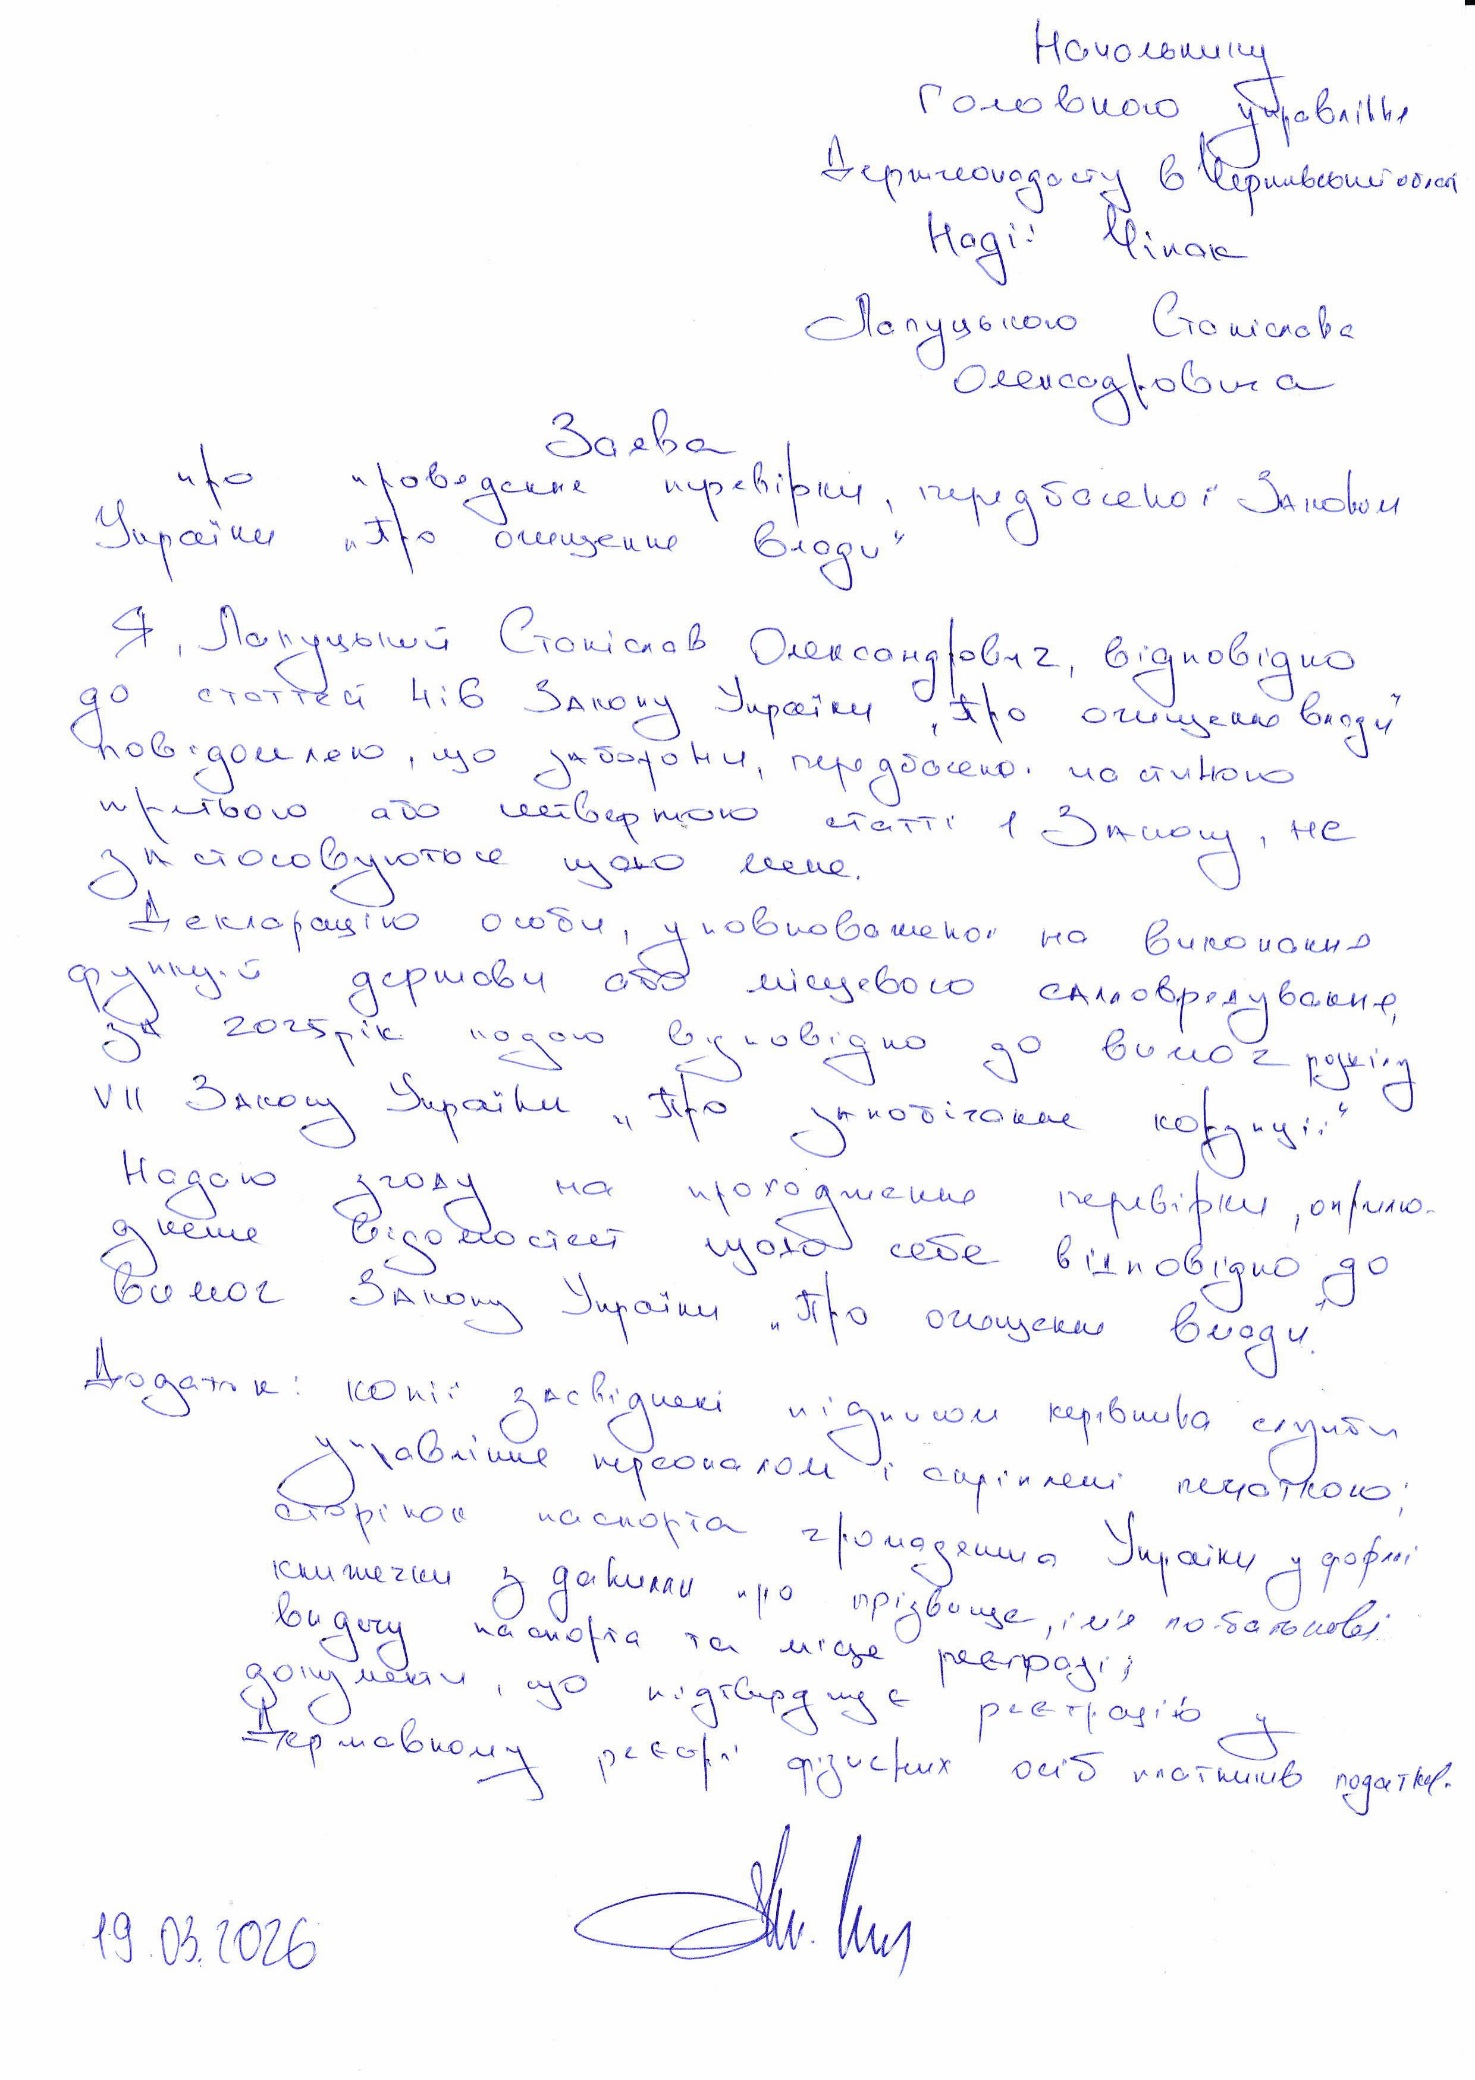 Начальнику
Головного управління
Держгеокадастру в Чернігівській області
Надії Чіпак
Лапуцького Станіслава
Олексадровича
Заява
про проведення перевірки, передбаченої Законом
України „Про очищення влади“
Я, Лапуцький Станіслав Олександрович, відповідно
до статтей 4 і 6 Закону України „Про очищення влади“
повідомляю, що заборони, передбачені частиною
третьою або четвертою статті 1 Закону, не
застосовуються щодо мене.
Декларацію особи, уповноваженої на виконання
функцій держави або місцевого самоврядування,
за 2025 рік подаю відповідно до вимог розділу
VII Закону України „Про запобігання корупції“
Надаю згоду на проходження перевірки, оприлю-
днення відомостей щодо себе відповідно до
вимог Закону України „Про очищення влади“.
Додаток: копії засвідчені підписом керівника служби
управління персоналом і скріплені печаткою:
сторінок паспорта громадянина України у формі
книжечки з даними про прізвище, ім'я по-батькові
видачу паспорта та місце реєстрації;
документи, що підтверджує реєстрацію у
Державному реєстрі фізичних осіб платників податків.
19.03.2026